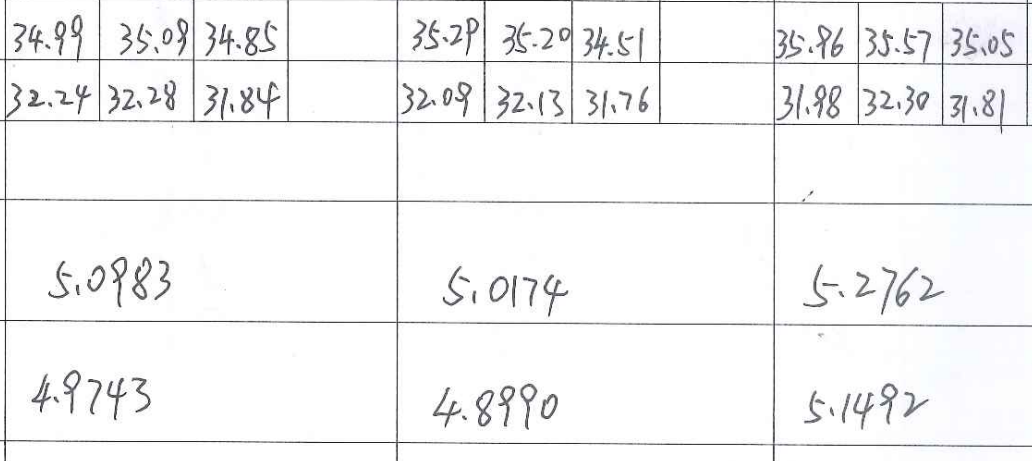 34.99 35.09 34.85 35.29 35.20 34.51 35.96 35.57 35.05
32.24 32.28 31.84 32.09 32.13 31.76 31.98 32.30 31.81
5.0983 5.0174 5.2762
4.9743 4.8990 5.1492